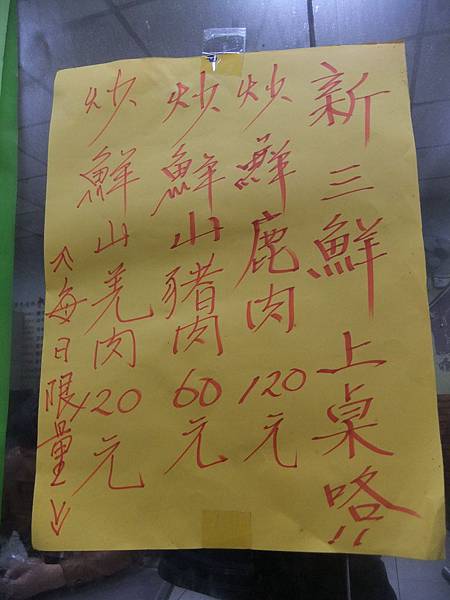 新三鮮上桌咯!!
炒鮮鹿肉120元
炒鮮山豬肉60元
炒鮮山羌肉120元
<每日限量>